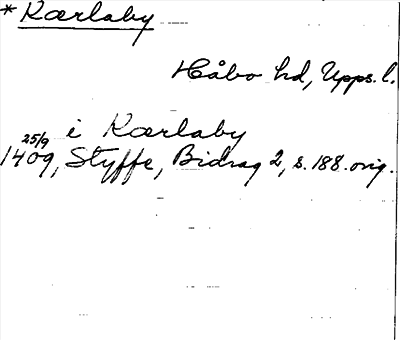 * Kærlaby
Håbo hd, Upps. l.
i Kærlaby
1409 25/9, Styffe, Bidrag 2, s. 188. orig.